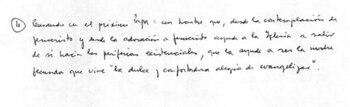 4) Pensando en el próximo Papa: un hombre que, desde la contemplación de
Jesucristo y desde la adoración a Jesucristo ayude a la Iglesia a salir
de sí hacia las periferias existenciales, que la ayude a ser la madre
fecunda que vive "la dulce y confortadora alegría de evangelizar".